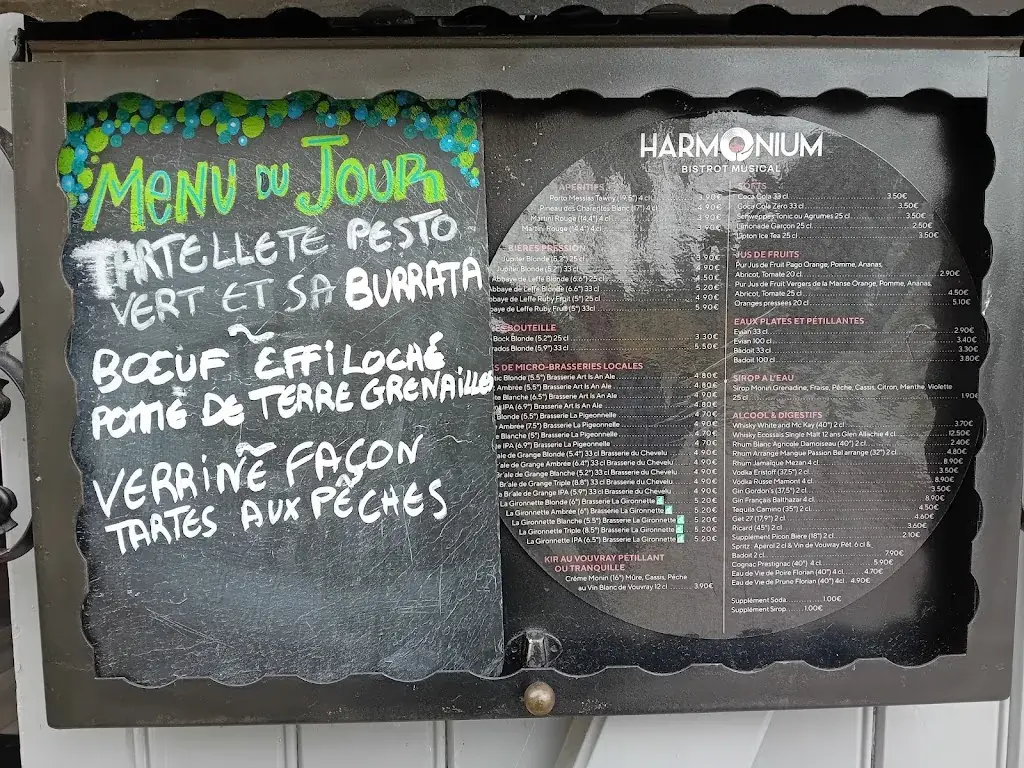 MENU DU JOUR
TARTELLETE PESTO
VERT ET SA BURRATA
~
BŒUF EFFILOCHÉ
POMME DE TERRE GRENAILLES
~
VERRINE FAÇON
TARTES AUX PÊCHES
HARMONIUM
BISTROT MUSICAL
APÉRITIFS
Porto Messias Tawny (19.5°) 4 cl 3.90€
Pineau des Charentes Blanc (17°) 4 cl 4.90€
Martini Rouge (14.4°) 4 cl 3.90€
Martini Rouge (14.4°) 4 cl 3.90€
BIÈRES PRESSION
Jupiler Blonde (5.2°) 25 cl 3.90€
Jupiler Blonde (5.2°) 33 cl 4.90€
Abbaye de Leffe Blonde (6.6°) 25 cl 4.50€
Abbaye de Leffe Blonde (6.6°) 33 cl 5.20€
baye de Leffe Ruby Fruit (5°) 25 cl 4.90€
baye de Leffe Ruby Fruit (5°) 33cl 5.90€
BOUTEILLE
Bock Blonde (5.2°) 25 cl 3.30€
rados Blonde (5,9°) 33 cl 5.50€
S DE MICRO-BRASSERIES LOCALES
tic Blonde (5.5°) Brasserie Art Is An Ale 4.80€
Ambrée (5.5°) Brasserie Art Is An Ale 4.80€
Blanche (6.5°) Brasserie Art Is An Ale 4.90€
IPA (6.9°) Brasserie Art Is An Ale 4.80€
Blonde (5.5°) Brasserie La Pigeonnelle 4.70€
Ambrée (7.5°) Brasserie La Pigeonnelle 4.90€
Blanche (5°) Brasserie La Pigeonnelle 4.70€
IPA (6.9°) Brasserie La Pigeonnelle 4.70€
ale de Grange Blonde (5.4°) 33 cl Brasserie du Chevelu 4.90€
ale de Grange Ambrée (6.4°) 33 cl Brasserie du Chevelu 4.90€
Br'ale de Grange Blanche (5.2°) 33 cl Brasserie du Chevelu 4.90€
Br'ale de Grange Triple (8.8°) 33 cl Brasserie du Chevelu 4.90€
Br'ale de Grange IPA (5.9°) 33 cl Brasserie du Chevelu 4.90€
La Gironnette Blonde (6°) Brasserie La Gironnette 5.20€
La Gironnette Ambrée (6°) Brasserie La Gironnette 5.20€
La Gironnette Blanche (5.5°) Brasserie La Gironnette 5.20€
La Gironnette Triple (8.5°) Brasserie La Gironnette 5.20€
La Gironnette IPA (6.5°) Brasserie La Gironnette 5.20€
KIR AU VOUVRAY PÉTILLANT
OU TRANQUILLE
Crème Monin (16°) Mûre, Cassis, Pêche
au Vin Blanc de Vouvray 12 cl 3.90€
SOFTS
Coca Cola 33 cl 3.50€
Coca Cola Zéro 33 cl 3.50€
Schweppes Tonic ou Agrumes 25 cl 3.50€
Limonade Garçon 25 cl 2.50€
Lipton Ice Tea 25 cl 3.50€
JUS DE FRUITS
Pur Jus de Fruit Pago Orange, Pomme, Ananas,
Abricot, Tomate 20 cl 2.90€
Pur Jus de Fruit Vergers de la Manse Orange, Pomme, Ananas,
Abricot, Tomate 25 cl 4.50€
Oranges pressées 20 cl 5.10€
EAUX PLATES ET PÉTILLANTES
Evian 33 cl 2.90€
Evian 100 cl 3.40€
Badoit 33 cl 3.30€
Badoit 100 cl 3.80€
SIROP A L'EAU
Sirop Monin Grenadine, Fraise, Pêche, Cassis, Citron, Menthe, Violette
25 cl 1.90€
ALCOOL & DIGESTIFS
Whisky White and Mc Kay (40°) 2 cl 3.70€
Whisky Ecossais Single Malt 12 ans Glen Allachie 4 cl 12.50€
Rhum Blanc Agricole Damoiseau (40°) 2 cl 2.40€
Rhum Arrange Mangue Passion Bel arrange (32°) 2 cl 4.80€
Rhum Jamaïque Mezan 4 cl 8.90€
Vodka Eristoff (37,5°) 2 cl 3.50€
Vodka Russe Mamont 4 cl 8.90€
Gin Gordon's (37,5°) 2 cl 3.50€
Gin Français Balthazar 4 cl 8.90€
Tequila Camino (35°) 2 cl 4.50€
Get 27 (17,9°) 2 cl 4.60€
Ricard (45°) 2 cl 3.60€
Supplément Picon Bière (18°) 2 cl 2.10€
Spritz : Aperol 2 cl & Vin de Vouvray Pét. 6 cl &
Badoit 2 cl 7.90€
Cognac Prestignac (40°) 4 cl 5.90€
Eau de Vie de Poire Florian (40°) 4 cl 4.70€
Eau de Vie de Prune Florian (40°) 4cl 4.90€
Supplément Soda 1.00€
Supplément Sirop 1.00€